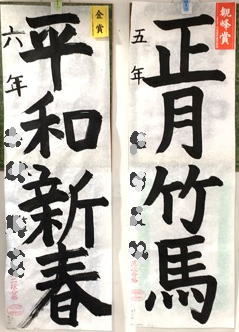 観峰賞
正月竹馬
五年
金賞
平和新春
六年